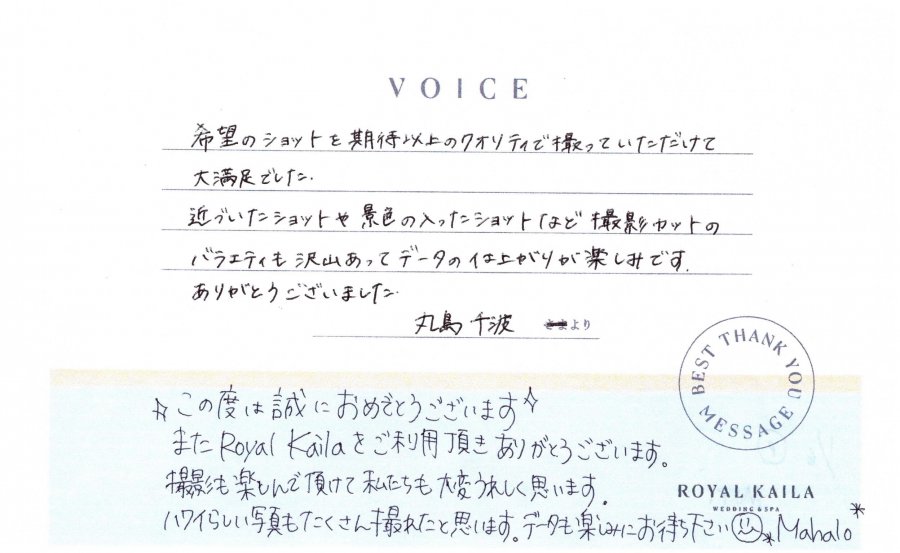 VOICE
希望のショットを期待以上のクオリティで撮っていただけて
大満足でした.
近づいたショットや景色の入ったショットなど撮影カットの
バラエティも沢山あってデータの仕上がりが楽しみです.
ありがとうございました.
丸島 千波 さまより
BEST THANK YOU
MESSAGE
☆この度は誠におめでとうございます☆
またRoyal Kailaをご利用頂きありがとうございます。
撮影も楽しんで頂けて私たちも大変うれしく思います.
ROYAL KAILA
WEDDING & SPA
ハワイらしい写真もたくさん撮れたと思います。データも楽しみにお待ち下さい *Mahalo*